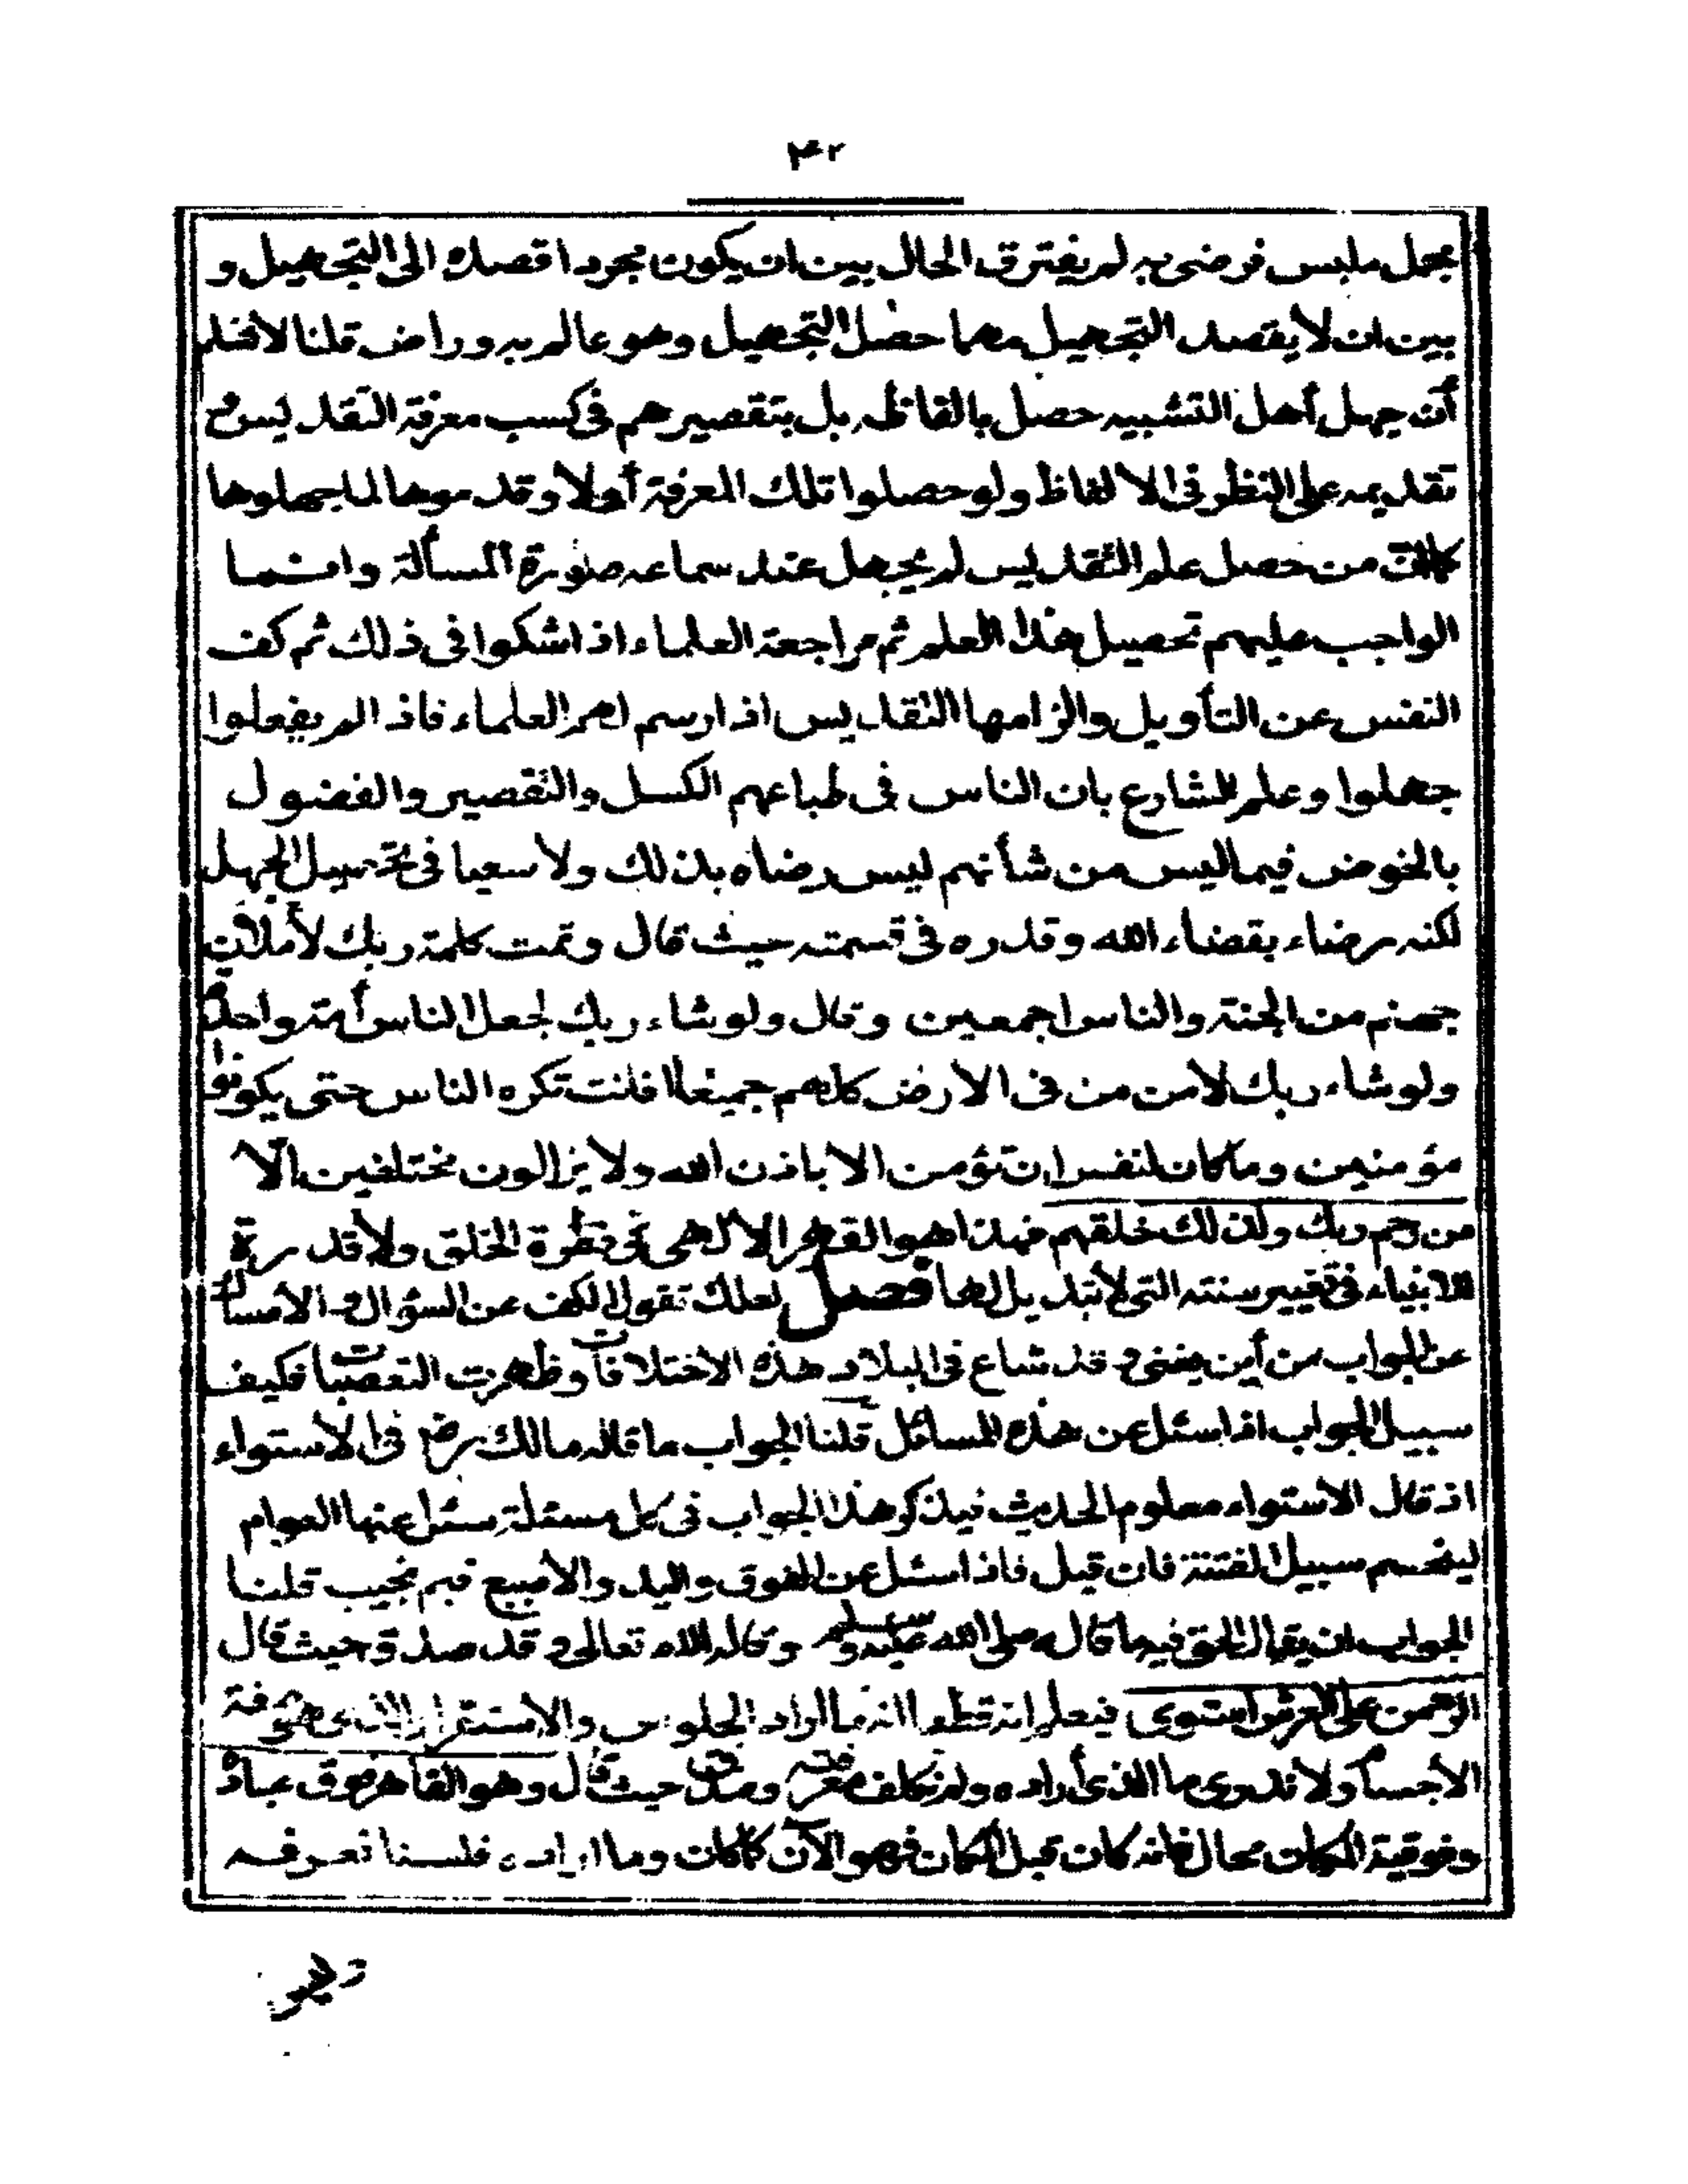 ٤٢
مجمل ملبس فرضى به لم يفترق الحال بين ان يكون مجرد اقصده الى التجهيل و
بين ان لا يقصد التجهيل مهما حصل التجهيل وهو عالم به وراض قلنا لا نسلم
أن جهل أهل التشبيه حصل بالفاظه بل بتقصيرهم فى كسب معرفة التقديس و
تقديمه على النظر فى الالفاظ ولو حصلوا تلك المعرفة أولا وقدموها لما جهلوها
كما ان من حصل علم التقديس لم يجهل عند سماعه صورة المسألة وانما
الواجب عليهم تحصيل هذا العلم ثم مراجعة العلماء اذا شكوا فى ذلك ثم كف
النفس عن التأويل والزامها التقديس اذا رسم لهم العلماء فاذا لم يفعلوا
جهلوا وعلم الشارع بان الناس فى طباعهم الكسل والتقصير والفضول
بالخوض فيما ليس من شأنهم ليس رضاه بذلك ولا سعيا فى تحصيل الجهل
لكنه رضاء بقضاء الله وقدره فى قسمته حيث قال وتمت كلمة ربك لأملان
جهنم من الجنة والناس اجمعين وقال ولو شاء ربك لجعل الناس أمة واحدة
ولو شاء ربك لامن من فى الارض كلهم جميعا افانت تكره الناس حتى يكونوا
مؤمنين وما كان لنفس ان تؤمن الا باذن الله ولا يزالون مختلفين الا
من رحم ربك ولذلك خلقهم فهذا هو القهر الالهى فى فطرة الخلق ولا قدرة
للانبياء فى تغيير سنته التى لا تبديل لها فصل لعلك تقول الكف عن السؤال و الامساك
عن الجواب من أين يغنى و قد شاع فى البلاد هذه الاختلافات وظهرت التعصبات فكيف
سبيل الجواب اذا سئل عن هذه المسائل قلنا الجواب ما قاله مالك رض فى الاستواء
اذ قال الاستواء معلوم الحديث فيذكر هذا الجواب فى كل مسئلة سئل عنها العوام
لينحسم سبيل الفتنة فان قيل فاذا سئل عن الفوق واليد والاصبع فبم نجيب قلنا
الجواب ان يقال الحق فيه ما قاله صلى الله عليه وسلم وقاله الله تعالى و قد صدق حيث قال
الرحمن على العرش استوى فيعلم انه قطعا انه ما اراد الجلوس والاستقرار الذى هو صفة
الأجسام ولا ندرى ما الذى أراده ولم نكلف معرفته وصدق حيث قال وهو القاهر فوق عباده
وفوقية المكان محال فانه كان قبل المكان فهو الآن كما كان وما اراده فلسنا نعرفه